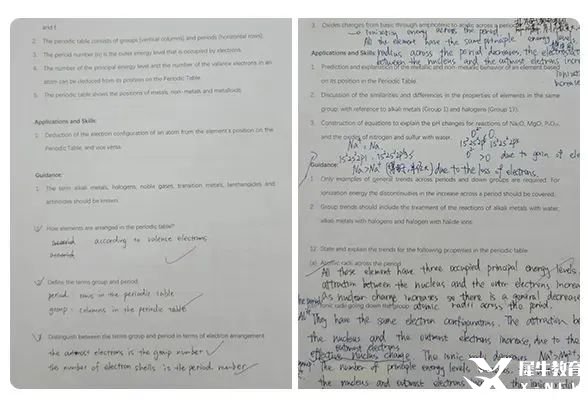 and f.
2. The periodic table consists of groups (vertical columns) and periods (horizontal rows).
3. The period number (n) is the outer energy level that is occupied by electrons.
4. The number of the principal energy level and the number of the valance electrons in an
atom can be deduced from its position on the Periodic Table.
5. The periodic table shows the positions of metals, non-metals and metalloids.
Applications and Skills:
1. Deduction of the electron configuration of an atom from the element's position on the
Periodic Table, and vice versa.
Guidance:
1. The term alkali metals, halogens, noble gases, transition metals, lanthanoids and
actinoids should be known.
How elements are arranged in the periodic table?
according to valence electrons
Define the terms group and period.
period: rows in the periodic table
group: columns in the periodic table
Distinguish between the terms group and period in terms of electron arrangement
the outmost electrons is the group number
the number of electron shells is the period number
3. Oxides changes from basic through amphoteric to acidic across a period
ionization energy across the period
All the element have the same principle energy level
Applications and Skills: radius across the period decreases, the electrostatic
between the nucleus and the outmost electrons increase
1. Prediction and explanation of the metallic and non-metallic behavior of an element based
on its position in the Periodic Table.
2. Discussion of the similarities and differences in the properties of elements in the same
group, with reference to alkali metals (Group 1) and halogens (Group 17).
3. Construction of equations to explain the pH changes for reactions of Na₂O, MgO, P₄O₁₀,
and the oxides of nitrogen and sulfur with water.
due to gain of
Guidance:
due to the loss of electrons.
1. Only examples of general trends across periods and down groups are required. For
ionization energy the discontinuities in the increase across a period should be covered.
2. Group trends should include the treatment of the reactions of alkali metals with water,
alkali metals with halogens and halogens with halide ions.
12. State and explain the trends for the following properties in the periodic table.
(a) Atomic radii across the period
All these element have three occupied principal energy levels
attraction between the nucleus and the outer electrons increase
As nuclear charge increases so there is a general decrease
atomic radii across the period.
Ionic radii going down the group
They have the same electron configurations. The attraction
the nucleus and the outmost electrons increase, due to the
effective nucleus charge. The ionic
The number of principle energy levels
the nucleus and outmost electrons
犀牛教育